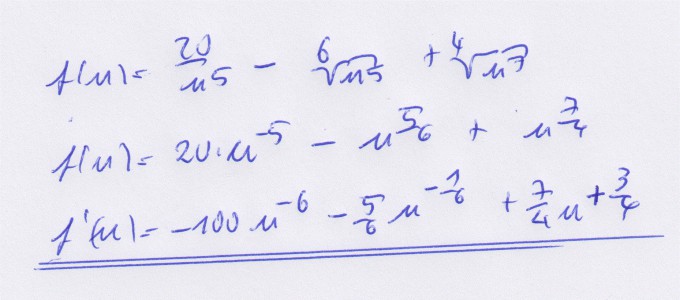 f(u) = 20/u⁵ - ⁶√u⁵ + ⁴√u⁷
f(u) = 20·u⁻⁵ - u^(5/6) + u^(7/4)
f'(u) = -100 u⁻⁶ - 5/6 u^(-1/6) + 7/4 u^(+3/4)